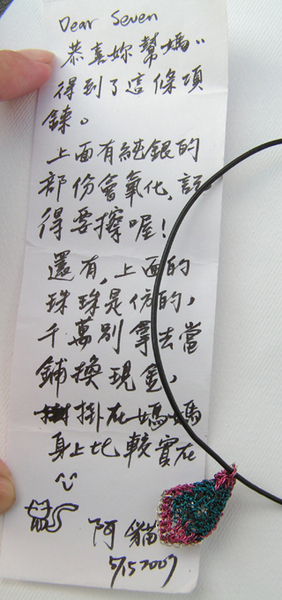 Dear Seven
恭喜妳幫媽媽
得到了這條項
鍊。
上面有純銀的
部份會氧化,記
得要擦喔!
還有,上面的
珠珠是仿的,
千萬別拿去當
鋪換現金,
掛在媽媽
身上比較實在
阿貓
5/15 2007